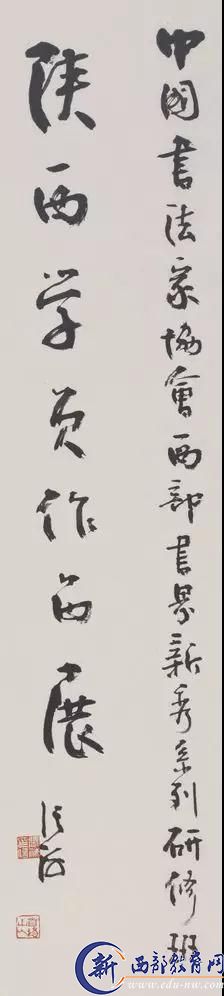 中国书法家協會西部書界新秀系列研修班
陕西学员作品展
张海
新西部教育网
www.edu-nw.com